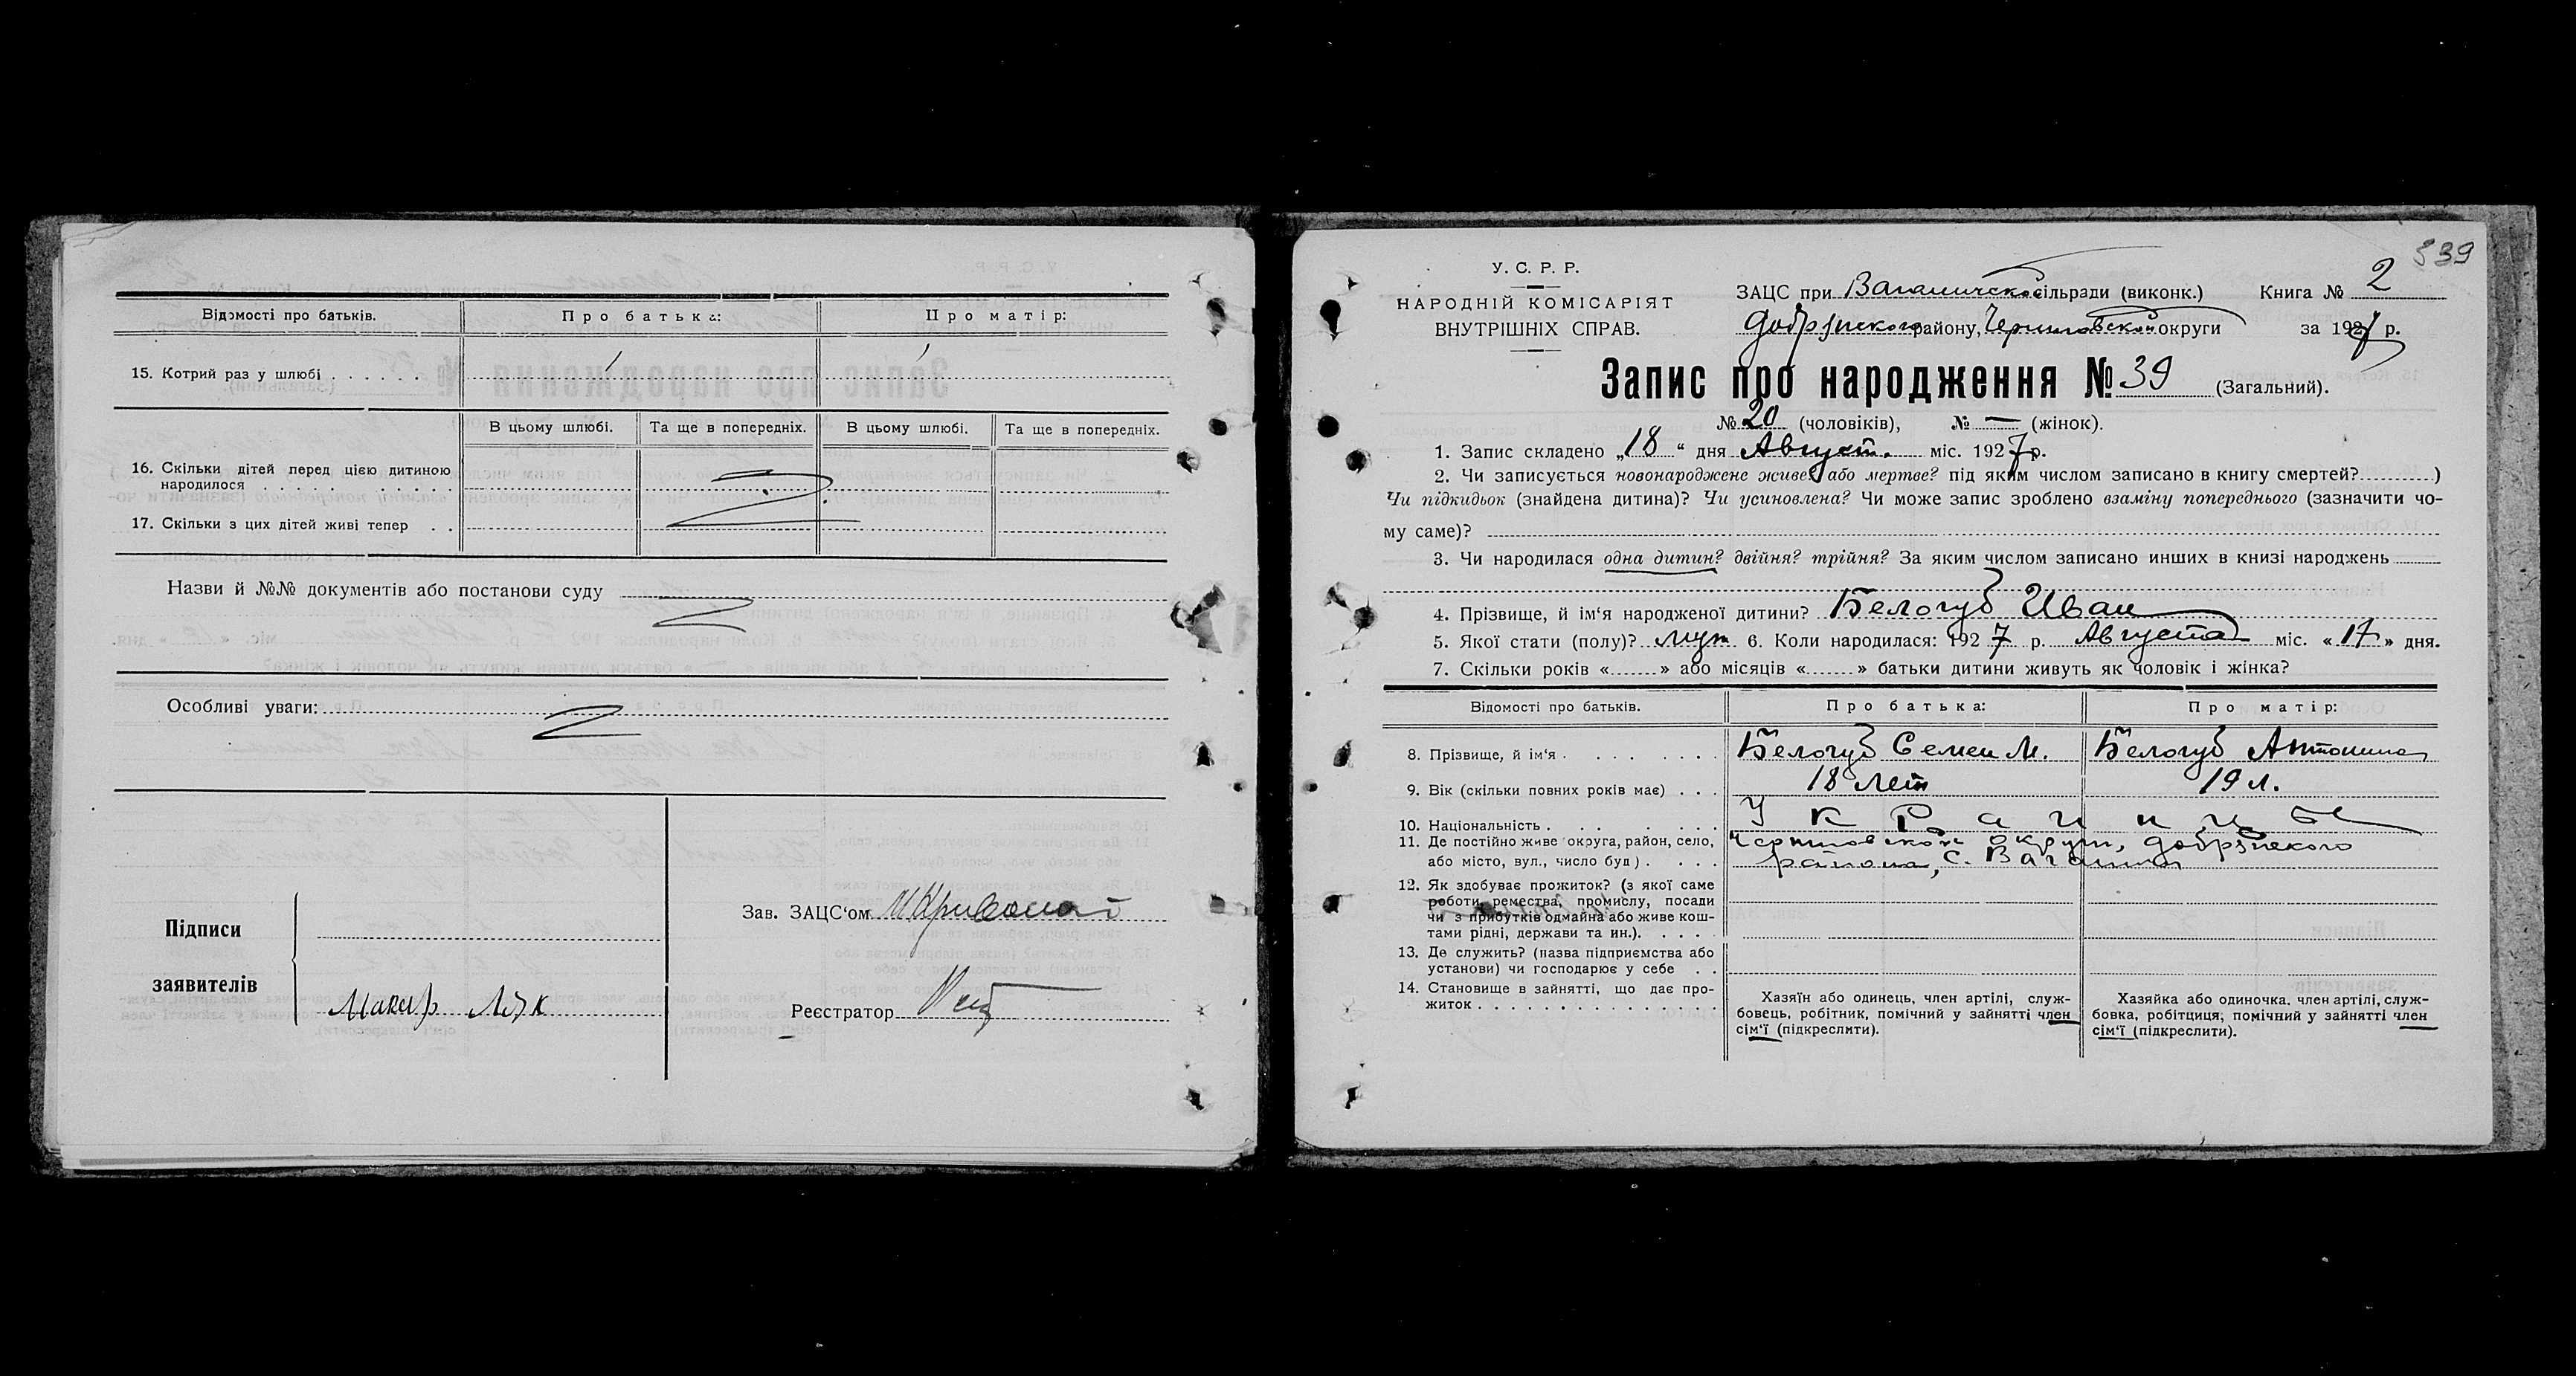 Відомості про батьків. Про батька: Про матір:
15. Котрий раз у шлюбі . . . . . . 1 1
В цьому шлюбі. Та ще в попередніх. В цьому шлюбі. Та ще в попередніх.
16. Скільки дітей перед цією дитиною
народилося . . . . . . . . . .
17. Скільки з цих дітей живі тепер . .
Назви й №№ документів або постанови суду
Особливі уваги:
Підписи
заявителів
Зав. ЗАЦС‘ом
Реєстратор
539
У. С. Р. Р.
НАРОДНІЙ КОМІСАРІЯТ
ВНУТРІШНІХ СПРАВ.
ЗАЦС при Ваганичской сільради (виконк.) Книга № 2
Добрянского району, Черниговской округи за 1927 р.
Запис про народження № 39 (Загальний).
№ 20 (чоловіків), № — (жінок).
1. Запис складено „18“ дня Август. міс. 1927 р.
2. Чи записується новонароджене живе? або мертве? під яким числом записано в книгу смертей?.........)
Чи підкидьок (знайдена дитина)? Чи усиновлена? Чи може запис зроблено взаміну попереднього (зазначити чо-
му саме)?
3. Чи народилася одна дитин? двійня? трійня? За яким числом записано инших в книзі народжень
4. Прізвище, й ім‘я народженої дитини? Белогуб Иван
5. Якої стати (полу)? муж 6. Коли народилася: 1927 р. Августа міс. «17» дня.
7. Скільки років «......» або місяців «......» батьки дитини живуть як чоловік і жінка?
Відомості про батьків. Про батька: Про матір:
8. Прізвище, й ім‘я . . . . . . Белогуб Семен М. Белогуб Антонина
9. Вік (скільки повних років має) . . . 18 лет 19 л.
10. Національність . . . . . . . Украинцы
11. Де постійно живе (округа, район, село,
або місто, вул., число буд) . . . .
Черниговской округи, Добрянского
района, с. Ваганичи
12. Як здобуває прожиток? (з якої саме
роботи, ремества, промислу, посади
чи з прибутків одмайна або живе кош-
тами рідні, держави та ин.). . . . .
13. Де служить? (назва підприємства або
установи) чи господарює у себе . .
14. Становище в зайнятті, що дає про-
житок . . . . . . . . . . . . . . .
Хазяїн або одинець, член артілі, служ-
бовець, робітник, помічний у зайнятті член
сім‘ї (підкреслити).
Хазяйка або одиночка, член артілі, служ-
бовка, робітциця, помічний у зайнятті член
сім‘ї (підкреслити).